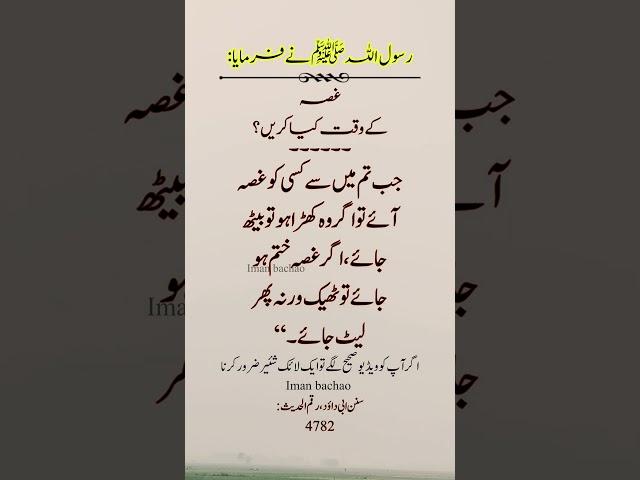 رسول اللہ ﷺ نے فرمایا:
غصہ
کے وقت کیا کریں؟
------
جب تم میں سے کسی کو غصہ
آئے تو اگر وہ کھڑا ہو تو بیٹھ
جائے، اگر غصہ ختم ہو
Iman bachao
جائے تو ٹھیک ورنہ پھر
لیٹ جائے۔“
اگر آپ کو ویڈیو صحیح لگے تو ایک لائک شئیر ضرور کرنا
Iman bachao
سنن ابی داؤد، رقم الحدیث:
4782